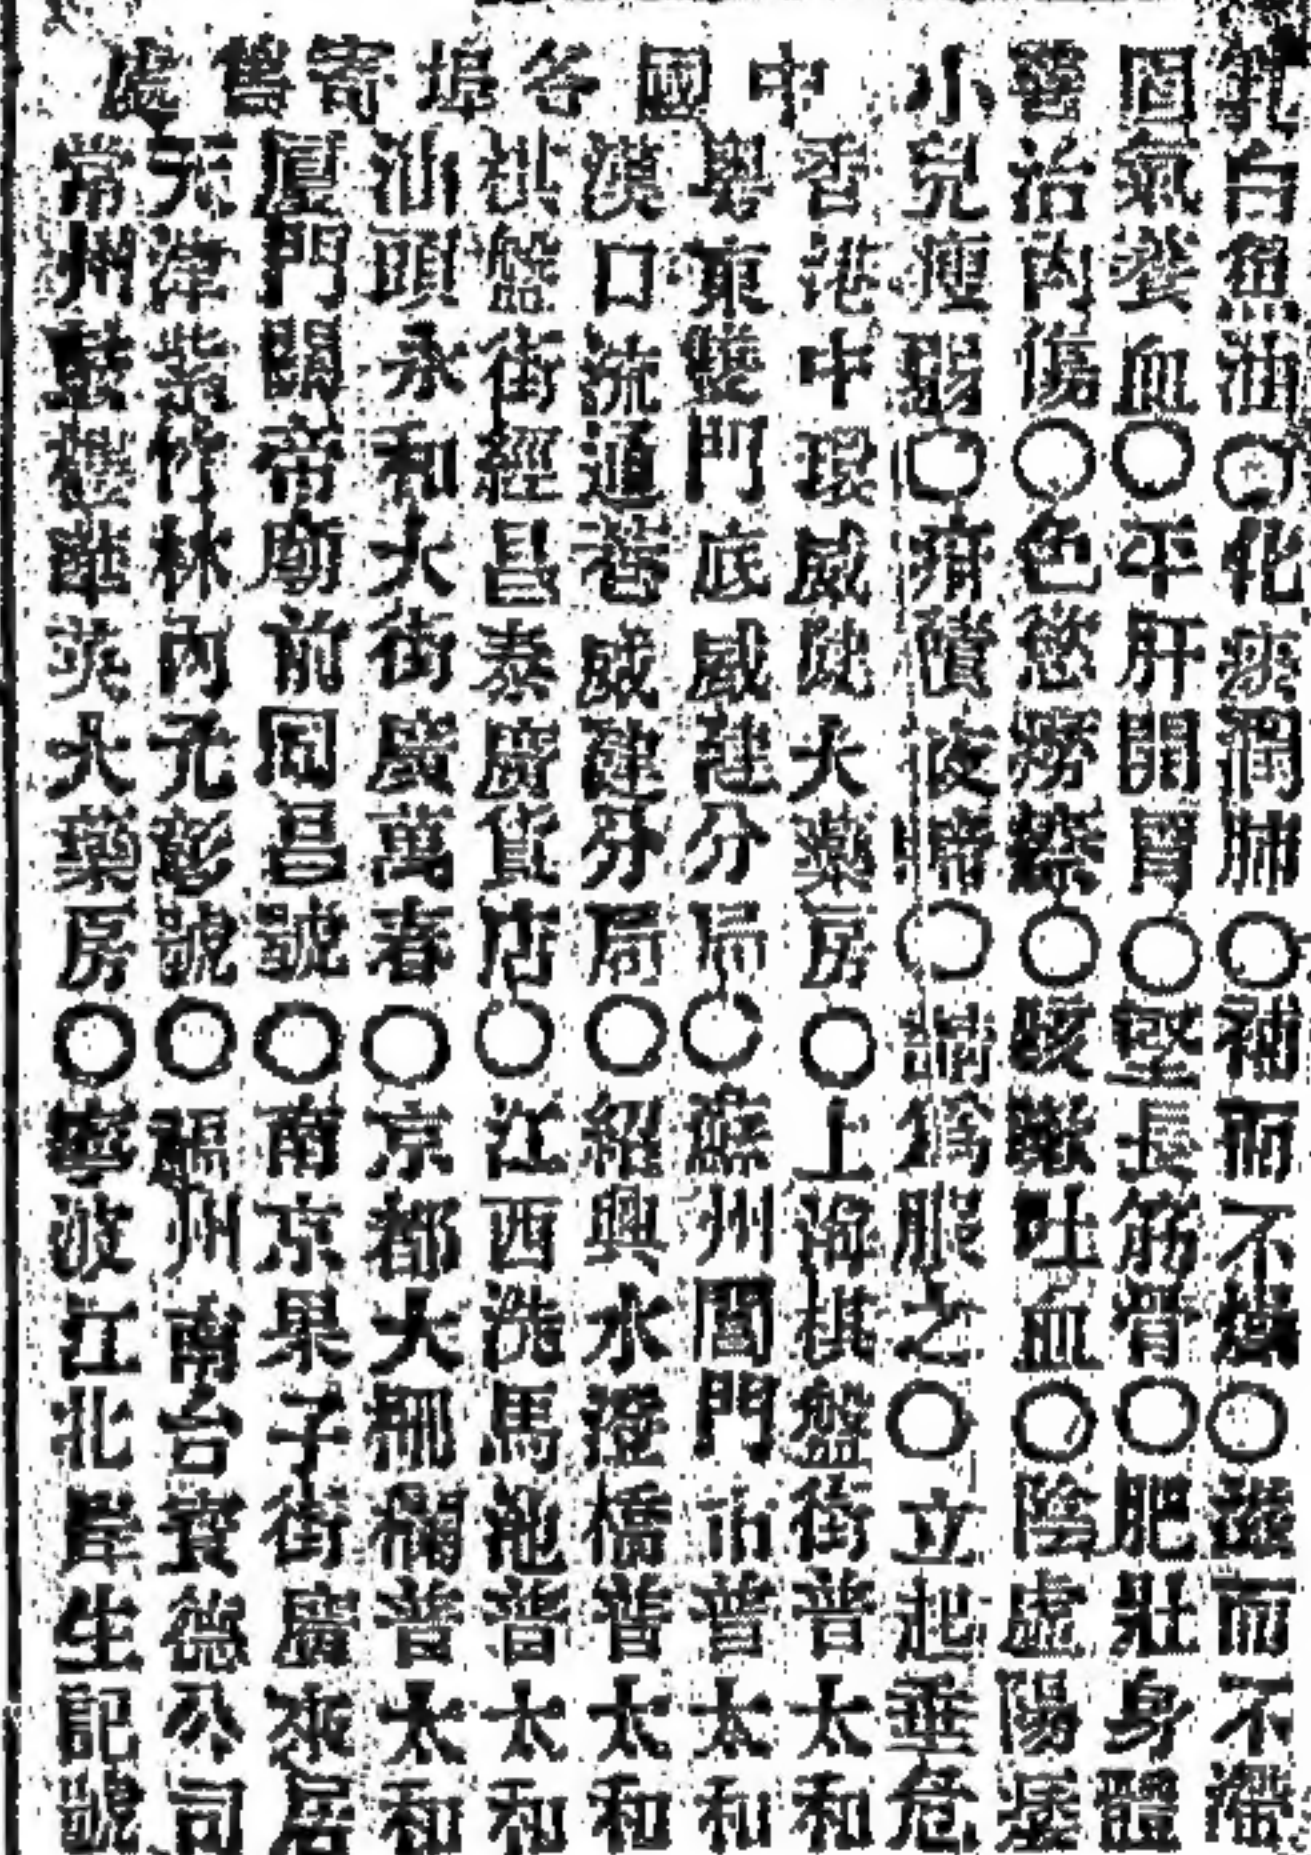 乳白魚油○化痰潤肺○補而不燥○滋而不滯
固氣養血○平肝開胃○堅長筋骨○肥壯身體
醫治內傷○色慾癆瘵○咳嗽吐血○陰虛陽萎
小兒瘦弱○疳積夜啼○請爲服之○立起垂危
中國各埠寄售處
香港中環威建大藥房○上海棋盤街普太和
粵東雙門底威建分局○蘇州閶門市普太和
漢口流通巷威建分局○紹興水澄橋普太和
棋盤街經昌泰廣貨店○江西洗馬池普太和
汕頭永和大街廣萬春○京都大柵欄普太和
廈門關帝廟前同昌號○南京果子街廣居
天津紫竹林內元彰號○福州南台德公司
常州鼓樓華英大藥房○寧波江北岸生記號